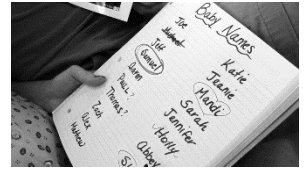 Baby Names
Joe
Jeff
Samuel
Aaron
Paul?
Thomas?
Zach
Alex
Matthew
Katie
Jeanie
Mandi
Sarah
Jennifer
Holly
Abbey